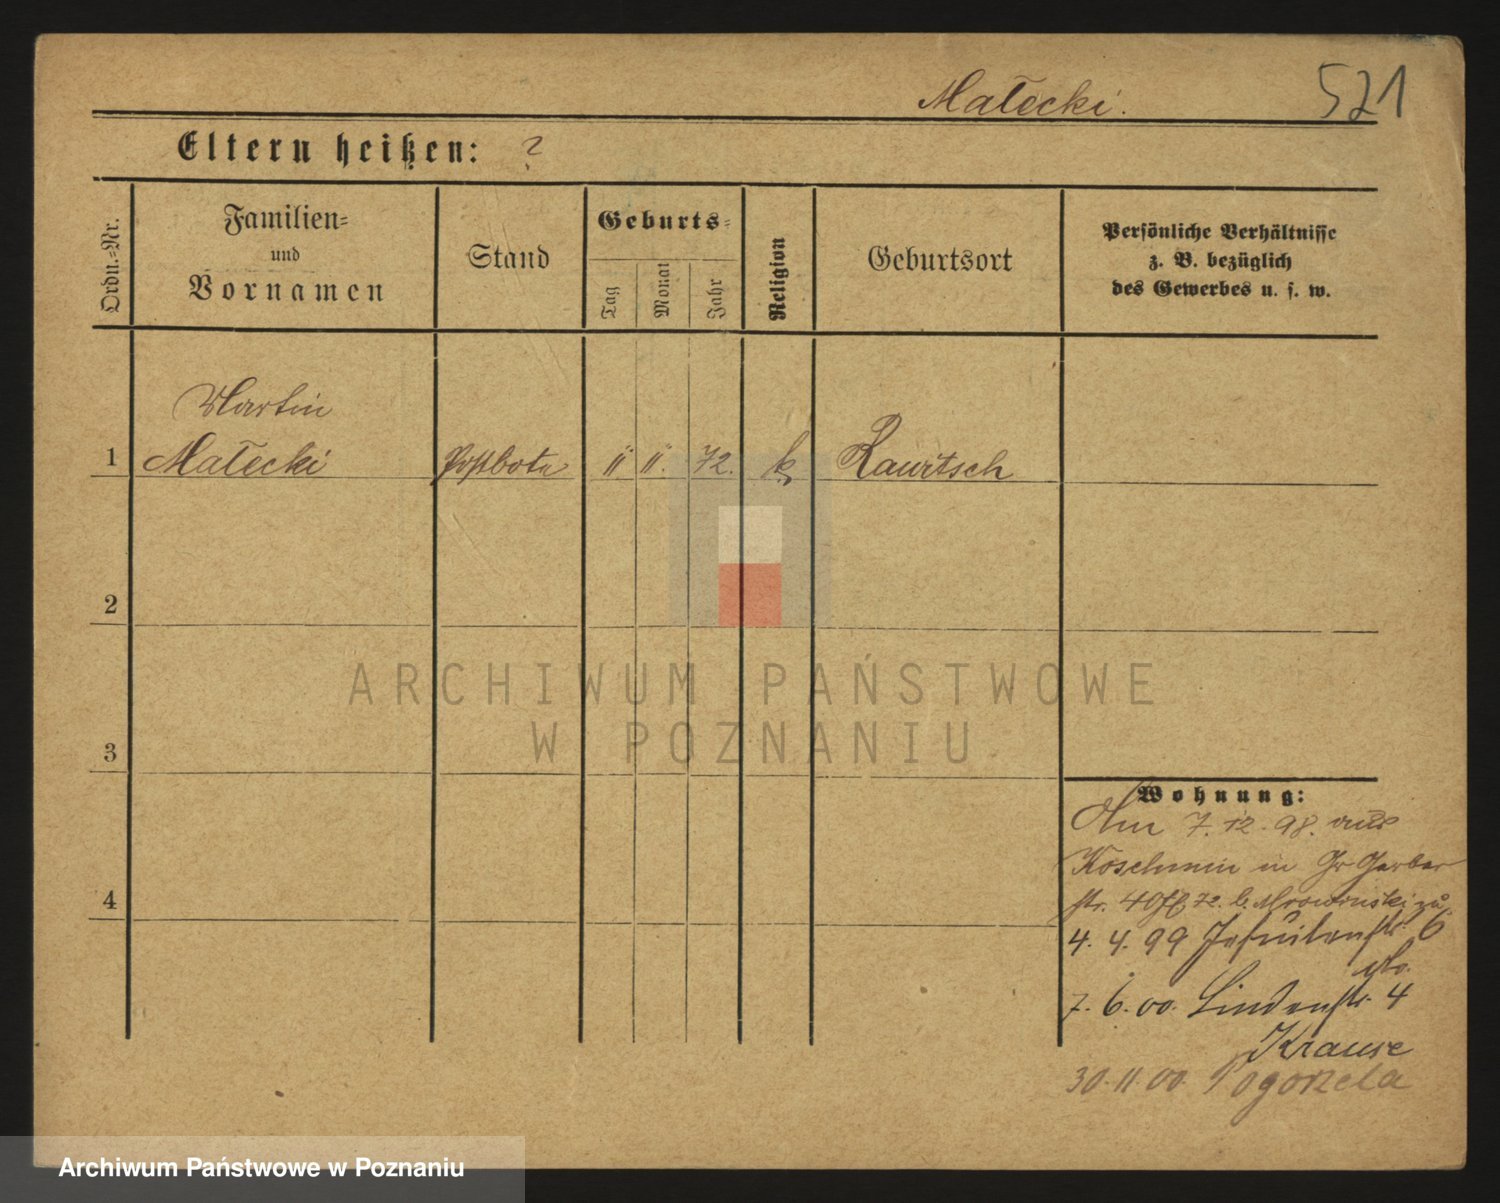 Małecki. 521
Eltern heißen: ?
Ordn.-Nr.
Familien-
und
Vornamen
Stand
Geburts-
Tag
Monat
Jahr
Religion
Geburtsort
Persönliche Verhältnisse
z. B. bezüglich
des Gewerbes u. s. w.
Martin
1 Małecki Postbote 11 11. 72. k. Rawitsch
2
3
4
Wohnung:
Am 7.12.98. aus
Koschmin in Gr Gerber
str. 40 b. zu
4. 4. 99 Jesuitenstr. 6
7. 6. 00. Lindenstr. 4
Krause
30.11.00. Pogorzela
ARCHIWUM PAŃSTWOWE
W POZNANIU
Archiwum Państwowe w Poznaniu